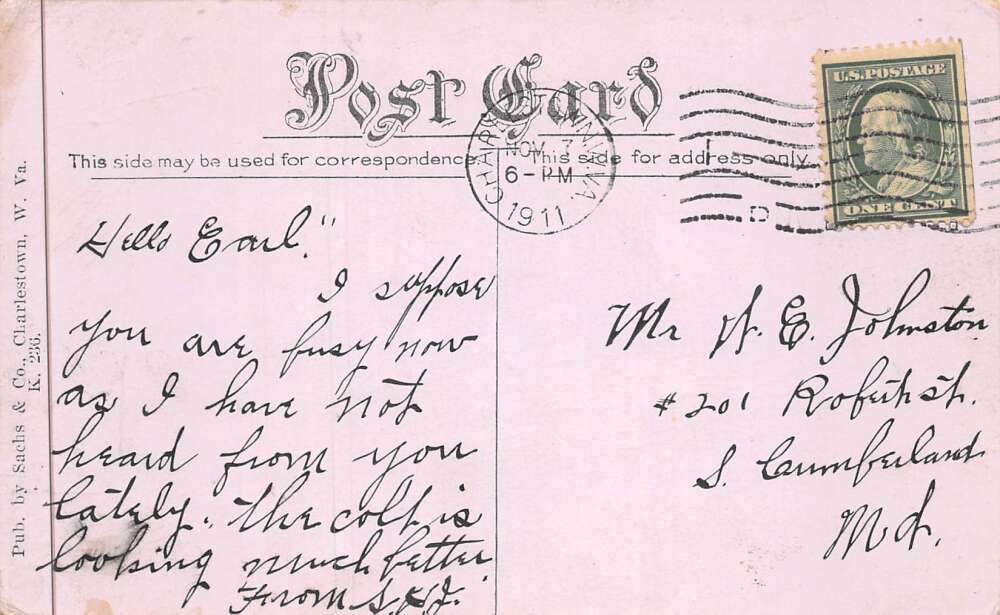 Post Card
This side may be used for correspondence.
This side for address only.
CHARLESTOWN W.VA.
NOV 7
6-PM
1911
U.S. POSTAGE
ONE CENT
Pub. by Sachs & Co., Charlestown, W. Va.
K. 236.
Hello Earl."
I suppose
you are busy now
as I have not
heard from you
lately. The colt is
looking much better
From S.H.J.
Mr W. E. Johnston
#201 Robert st.
S. Cumberland
Md.